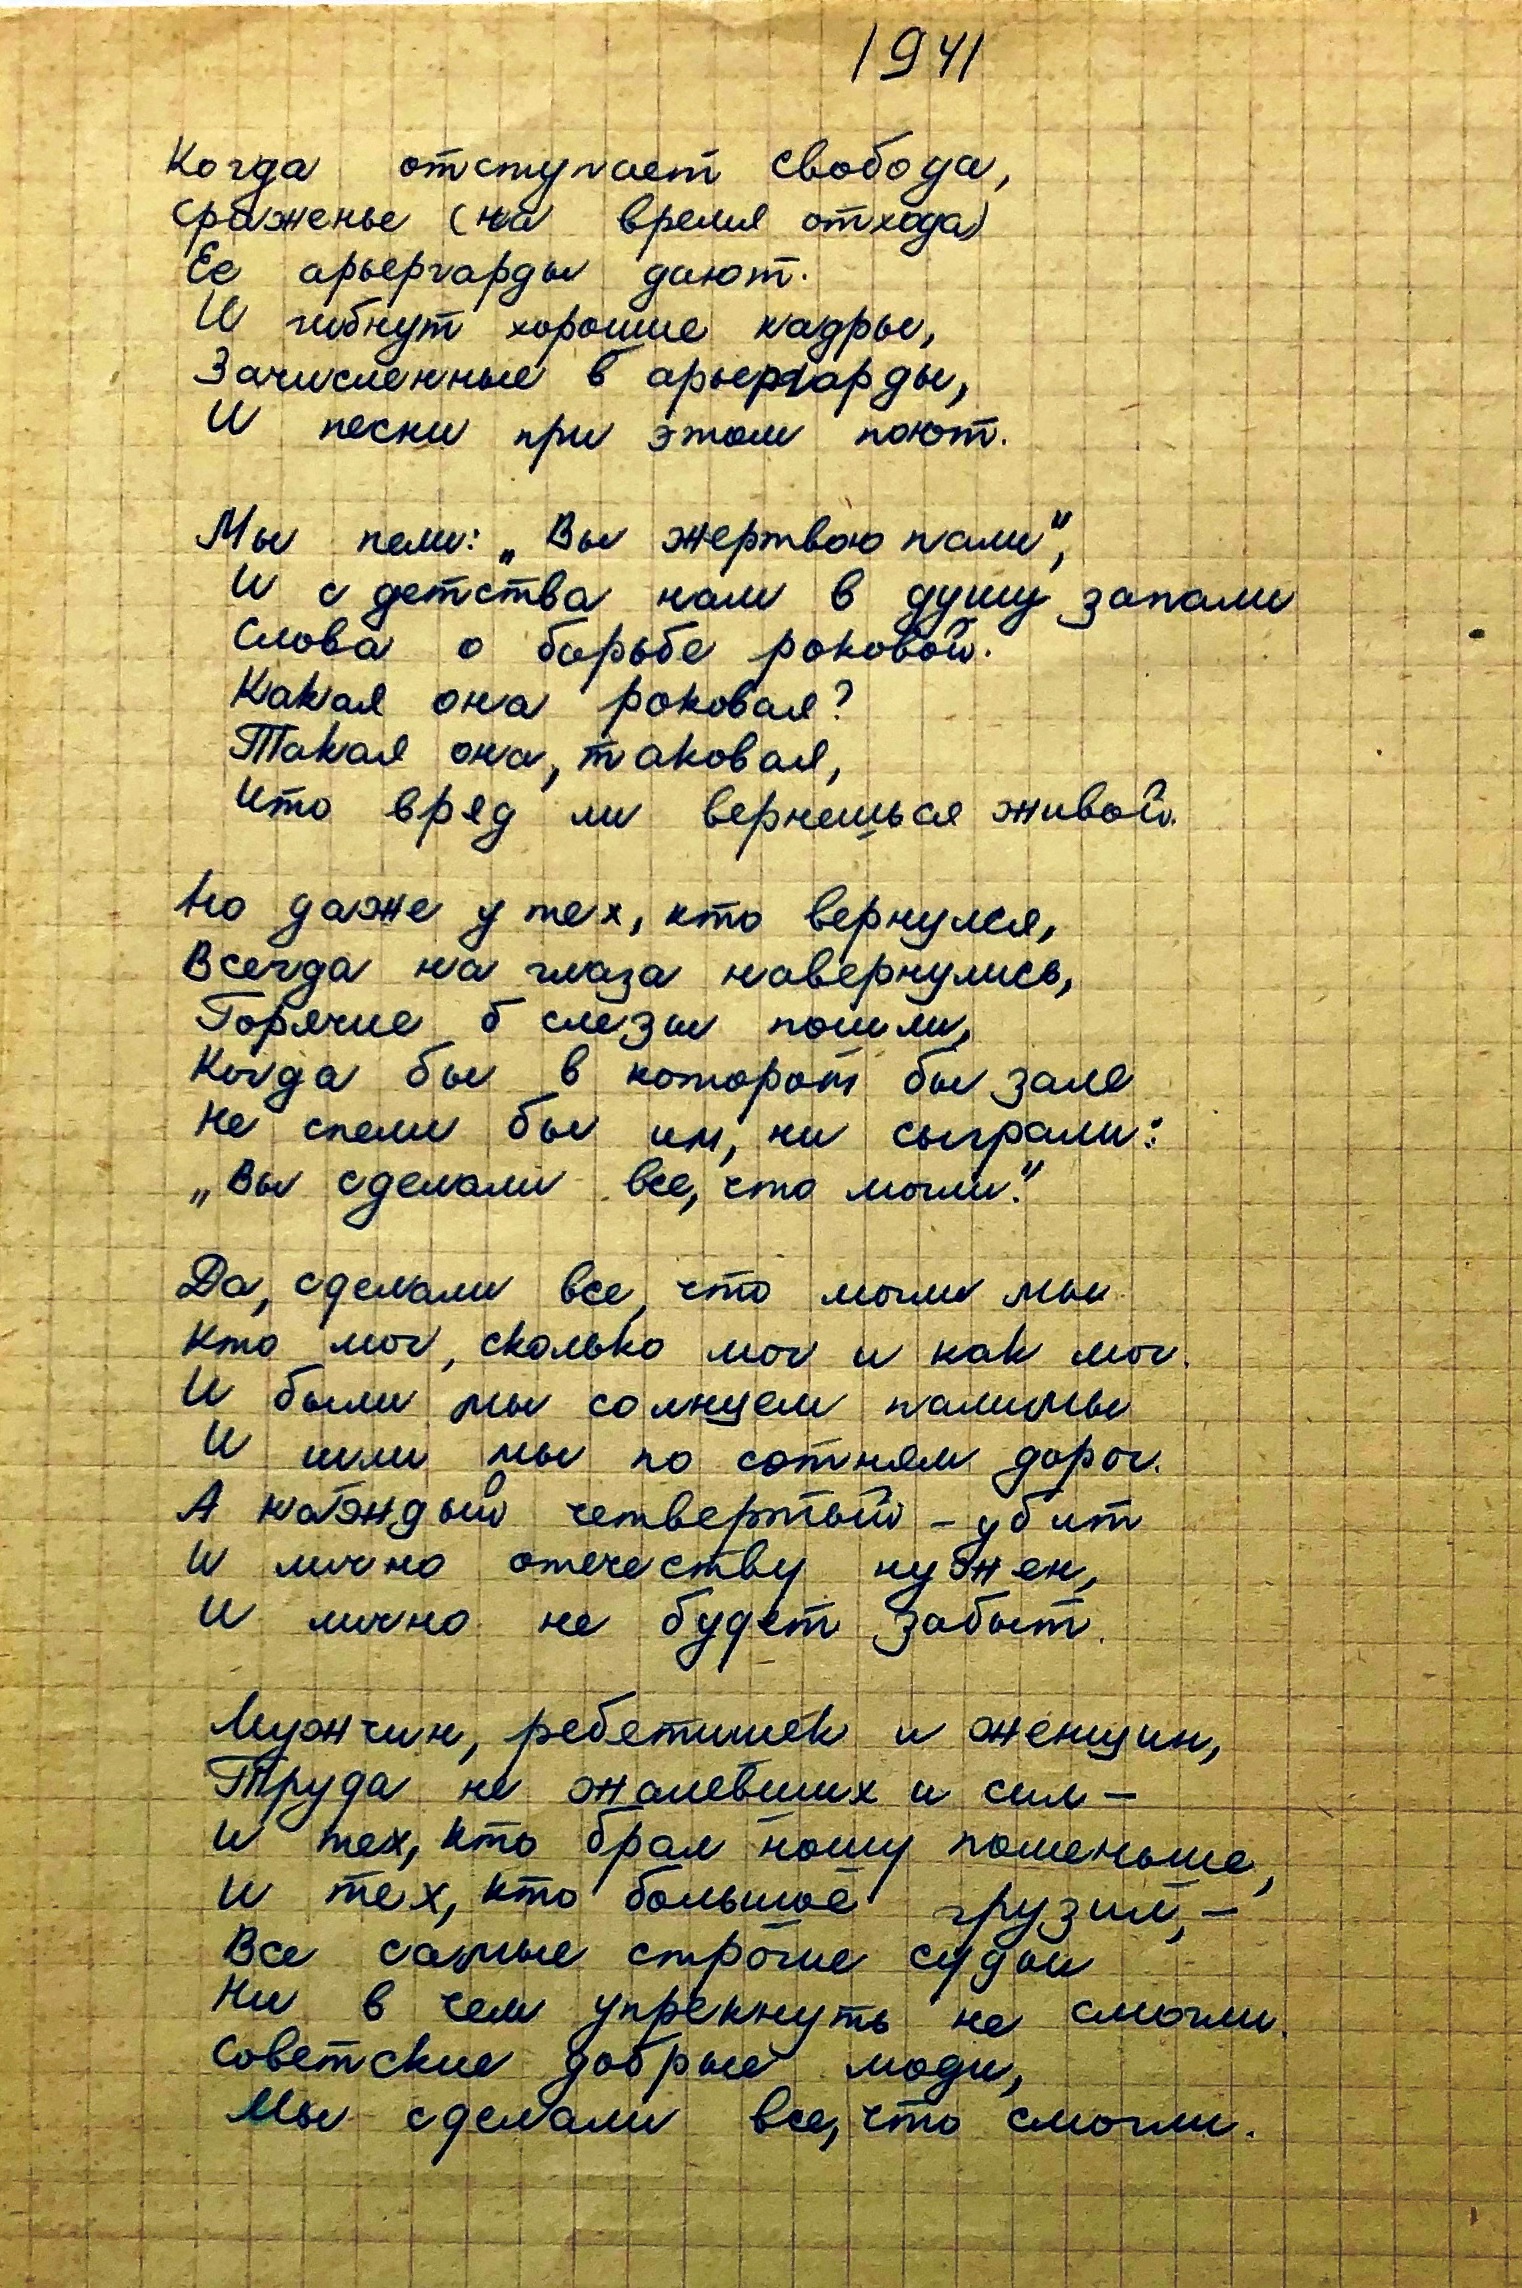 1941
Когда отступает свобода,
Сраженье (на время отхода)
Ее арьергарды дают.
И гибнут хорошие кадры,
Зачисленные в арьергарды,
И песни при этом поют.
Мы пели: „Вы жертвою пали“,
И с детства нам в душу запали
Слова о борьбе роковой.
Какая она роковая?
Такая она, таковая,
Что вряд ли вернешься живой.
Но даже у тех, кто вернулся,
Всегда на глаза навернулись,
Горячие б слезы пошли,
Когда бы в котором бы зале
Не спели бы им, ни сыграли:
„Вы сделали все, что могли.“
Да, сделали все, что могли мы
Кто мог, сколько мог и как мог.
И были мы солнцем палимы
И шли мы по сотням дорог.
А каждый четвертый – убит
И лично отечеству нужен,
И лично не будет забыт.
Мужчин, ребетишек и женщин,
Труда не жалевших и сил –
И тех, кто брал ношу поменьше,
И тех, кто большое грузил, –
Все самые строгие судьи
Ни в чем упрекнуть не смогли.
Советские добрые люди,
Мы сделали все, что смогли.